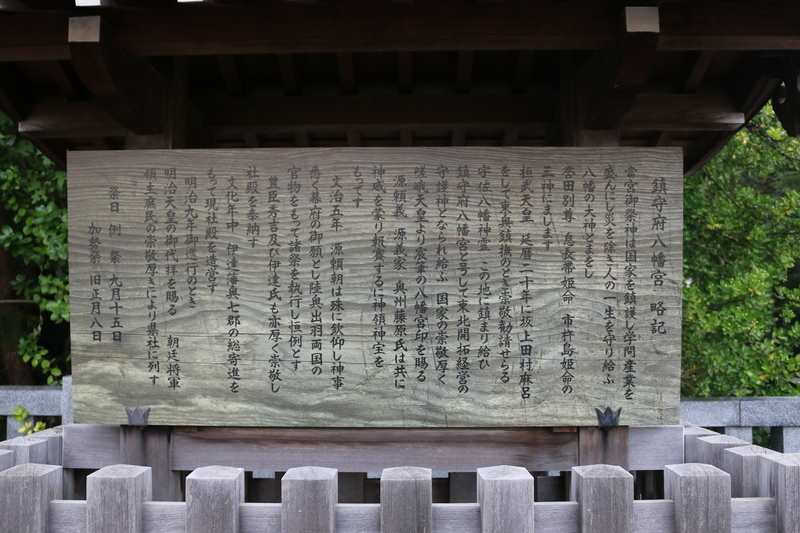 鎮守府八幡宮 略記
當宮御祭神は国家を鎮護し学問産業を
盛んにし災を除き人の一生を守り給ふ
八幡の大神とまをし
誉田別尊 息長帯姫命 市杵島姫命の
三神にまします
桓武天皇 延暦二十年に坂上田村麻呂
をして東夷鎮撫のとき崇敬勧請せらる
宇佐八幡神霊 この地に鎮まり給ひ
鎮守府八幡宮と号して東北開拓経営の
守護神となられ給ふ 国家の崇敬厚く
嵯峨天皇より宸筆の八幡宮印を賜る
源頼義 源義家 奥州藤原氏は共に
神威を蒙り報賽するに神領神宝を
もってす
文治五年 源頼朝は殊に欽仰し神事
悉く幕府の御願とし陸奥出羽両国の
官物をもって諸祭を執行し恒例とす
豊臣秀吉及び伊達氏も亦厚く崇敬し
社殿を奉納す
文化年中 伊達藩奥七郡の総寄進を
もって現社殿を造営す
明治九年御巡行のとき
明治天皇の御代拝を賜る 朝廷将軍
領主庶民の崇敬厚きにより県社に列す
祭日 例祭 九月十五日
加勢祭 旧正月八日